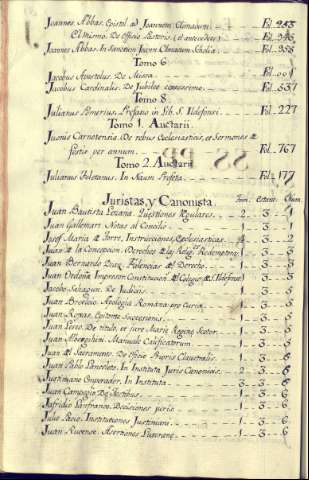 Joannes Abbas. Epistol. ad Joannem Climacum. Fol. 283
El mismo. De Officio Pastoris (et antecedens) Fol. 343
Joannes Abbas. In Sanctum Joann Climacum Scholia. Fol. 358
Tomo 6.
Jacobus Apostolus. De Missa. Fol. 001
Jacobus Cardinalis. De Jubileo centessimo. Fol. 537
Tomo 8.
Julianus Pomerius. Prefatio in Lib. S. Ildefonsi. Fol. 227
Tomo 1. Auctarii
Jusnis Carnotensis. De rebus Ecclesiasticis, et Sermones de
festis per annum. Fol. 767
Tomo 2. Auctarii
Julianus Toletanus. In Naum Profeta. Fol. 177
Juristas, y Canonistas
Tom. Estant. Num.
Juan Bautista Lezana. Questiones Regulares. 2 3 1
Juan Gallemart. Notas al Concilio. 1 3 1
Josef Maria de Torre, Instrucciones Ecclesiasticas. 3 2
Juan de la Concepcion. Derechos de la Relig. Redemptora. 1 3 3
Juan Bernardo Diaz. Falencias del Derecho. 1 3
Juan Ordoña. Impresion Constitucion del Colegio de S. Ildefonso 1 3
Jacobo Sahagun. De Judiciis. 1 3 5
Juan Brordeo. Apologia Romana pro curia. 1 3 5
Juan Roxas. Epitome Successionis. 1 3 5
Juan Lesso. De titulo, et jure Mariæ Regine Scotor. 1 3 5
Juan Manuale Calificatorum. 1 3 5
Juan del Sacramento. De Officio Prioris Claustralis. 1 3 6
Juan Pablo Lanceloto. In Instituta Juris Canonicis. 2 3 6
Justiniano Emperador. In Instituta 3 3 6
Juan Campegio De Testibus. 1 3 6
Jafredio Lanfranco. Decisiones juris. 1 3 6
Julio Pacio. Institutiones Justiniani. 1 3 6
Juan Ruvense. Asertiones Luterang. 1 3 6